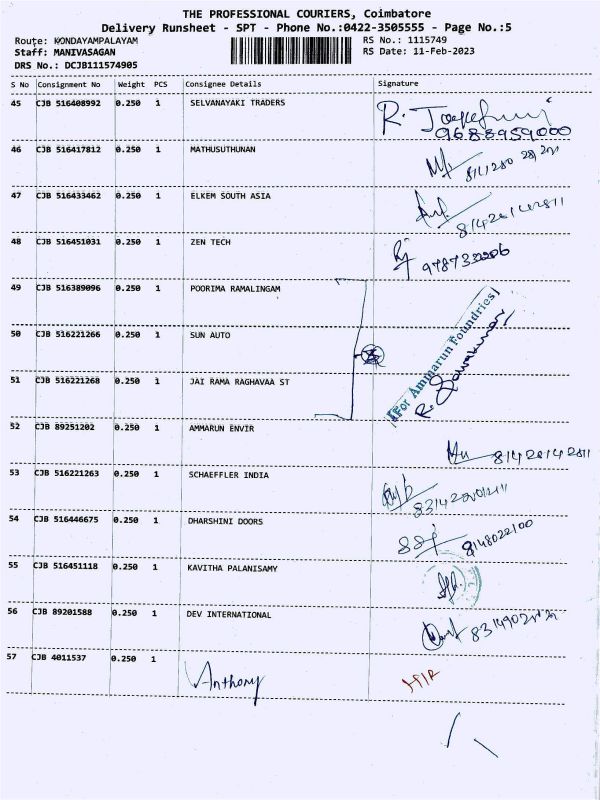 THE PROFESSIONAL COURIERS, Coimbatore
Delivery Runsheet - SPT - Phone No.:0422-3505555 - Page No.:5
Route: KONDAYAMPALAYAM
RS No.: 1115749
Staff: MANIVASAGAN
RS Date: 11-Feb-2023
DRS No.: DCJB111574905
S No Consignment No Weight PCS Consignee Details Signature
45 CJB 516408992 0.250 1 SELVANAYAKI TRADERS
9688959000
46 CJB 516417812 0.250 1 MATHUSUTHUNAN
47 CJB 516433462 0.250 1 ELKEM SOUTH ASIA
48 CJB 516451031 0.250 1 ZEN TECH
49 CJB 516389096 0.250 1 POORIMA RAMALINGAM
50 CJB 516221266 0.250 1 SUN AUTO
For Ammarun Foundries
51 CJB 516221268 0.250 1 JAI RAMA RAGHAVAA ST
52 CJB 89251202 0.250 1 AMMARUN ENVIR
53 CJB 516221263 0.250 1 SCHAEFFLER INDIA
54 CJB 516446675 0.250 1 DHARSHINI DOORS
8148022100
55 CJB 516451118 0.250 1 KAVITHA PALANISAMY
56 CJB 89201588 0.250 1 DEV INTERNATIONAL
57 CJB 4011537 0.250 1 Anthony